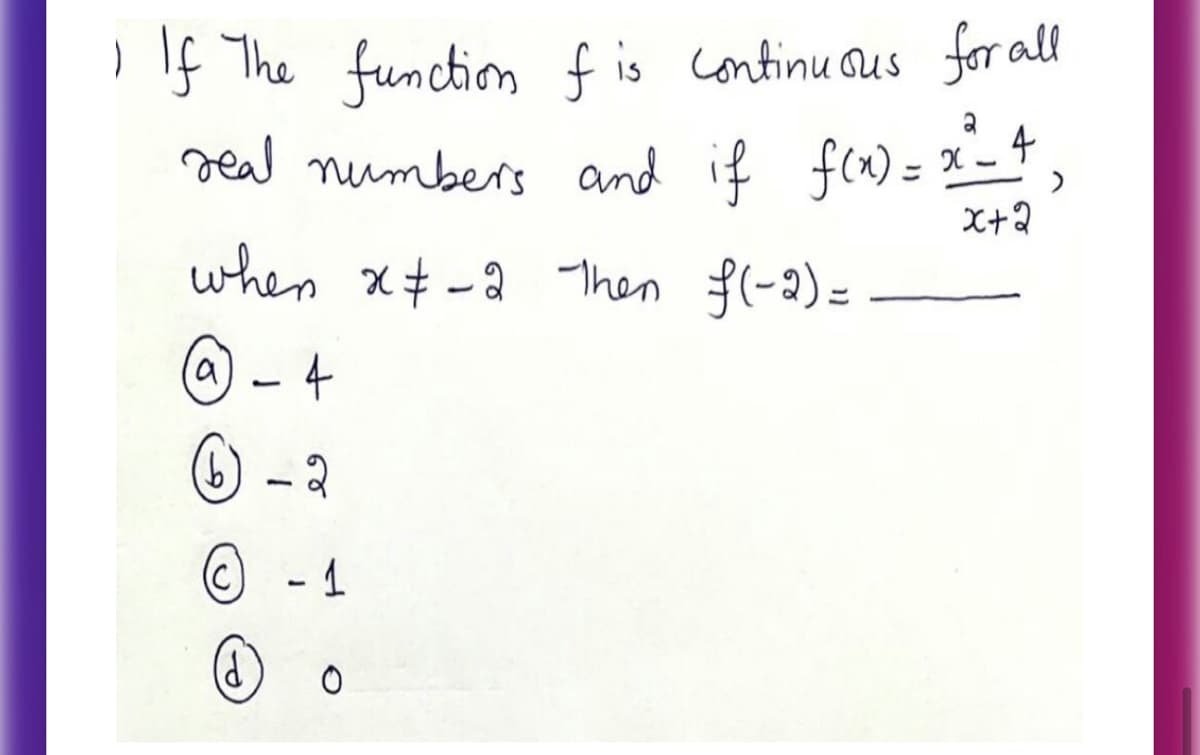 ) If The function f is continuous for all
real numbers and if f(x) = x²-4 / x+2 ,
when x ≠ -2 Then f(-2) = ______
ⓐ - 4
ⓑ - 2
ⓒ - 1
ⓓ 0